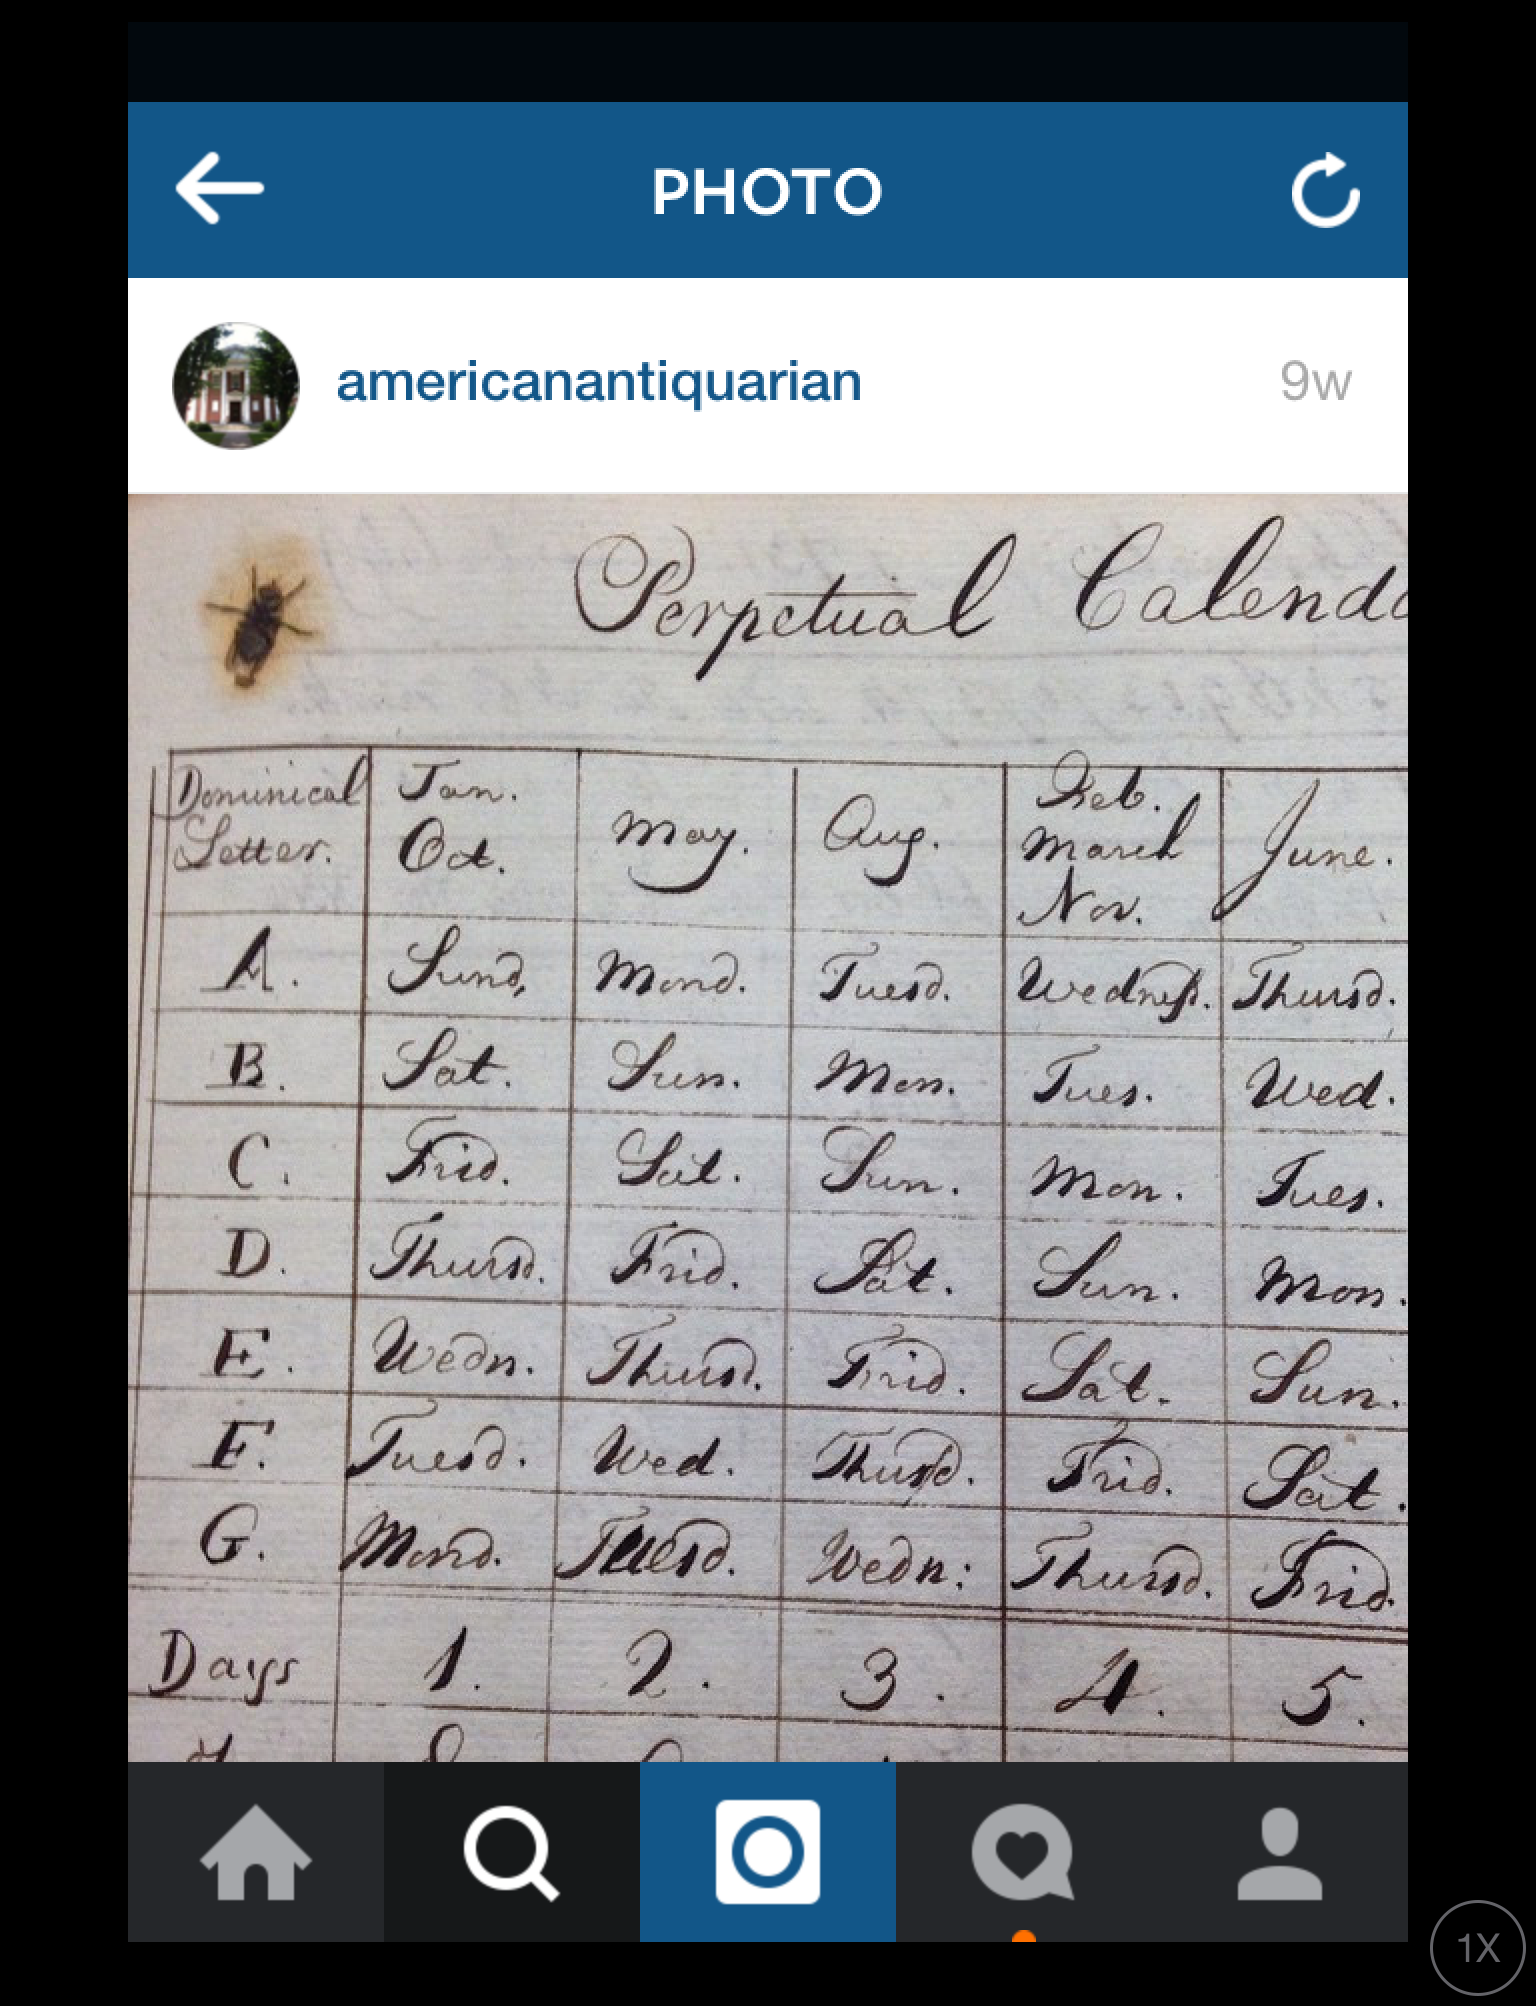 PHOTO
americanantiquarian 9w
Perpetual Calenda
Dominical Letter. Jan. Oct. May. Aug. Feb. March Nov. June.
A. Sund, Mond. Tuesd. Wednesd. Thursd.
B. Sat. Sun. Mon. Tues. Wed.
C. Frid. Sat. Sun. Mon. Tues.
D. Thursd. Frid. Sat. Sun. Mon.
E. Wedn. Thursd. Frid. Sat. Sun.
F. Tuesd. Wed. Thursd. Frid. Sat.
G. Mond. Tuesd. Wedn: Thursd. Frid.
Days 1. 2. 3. 4. 5.
1X